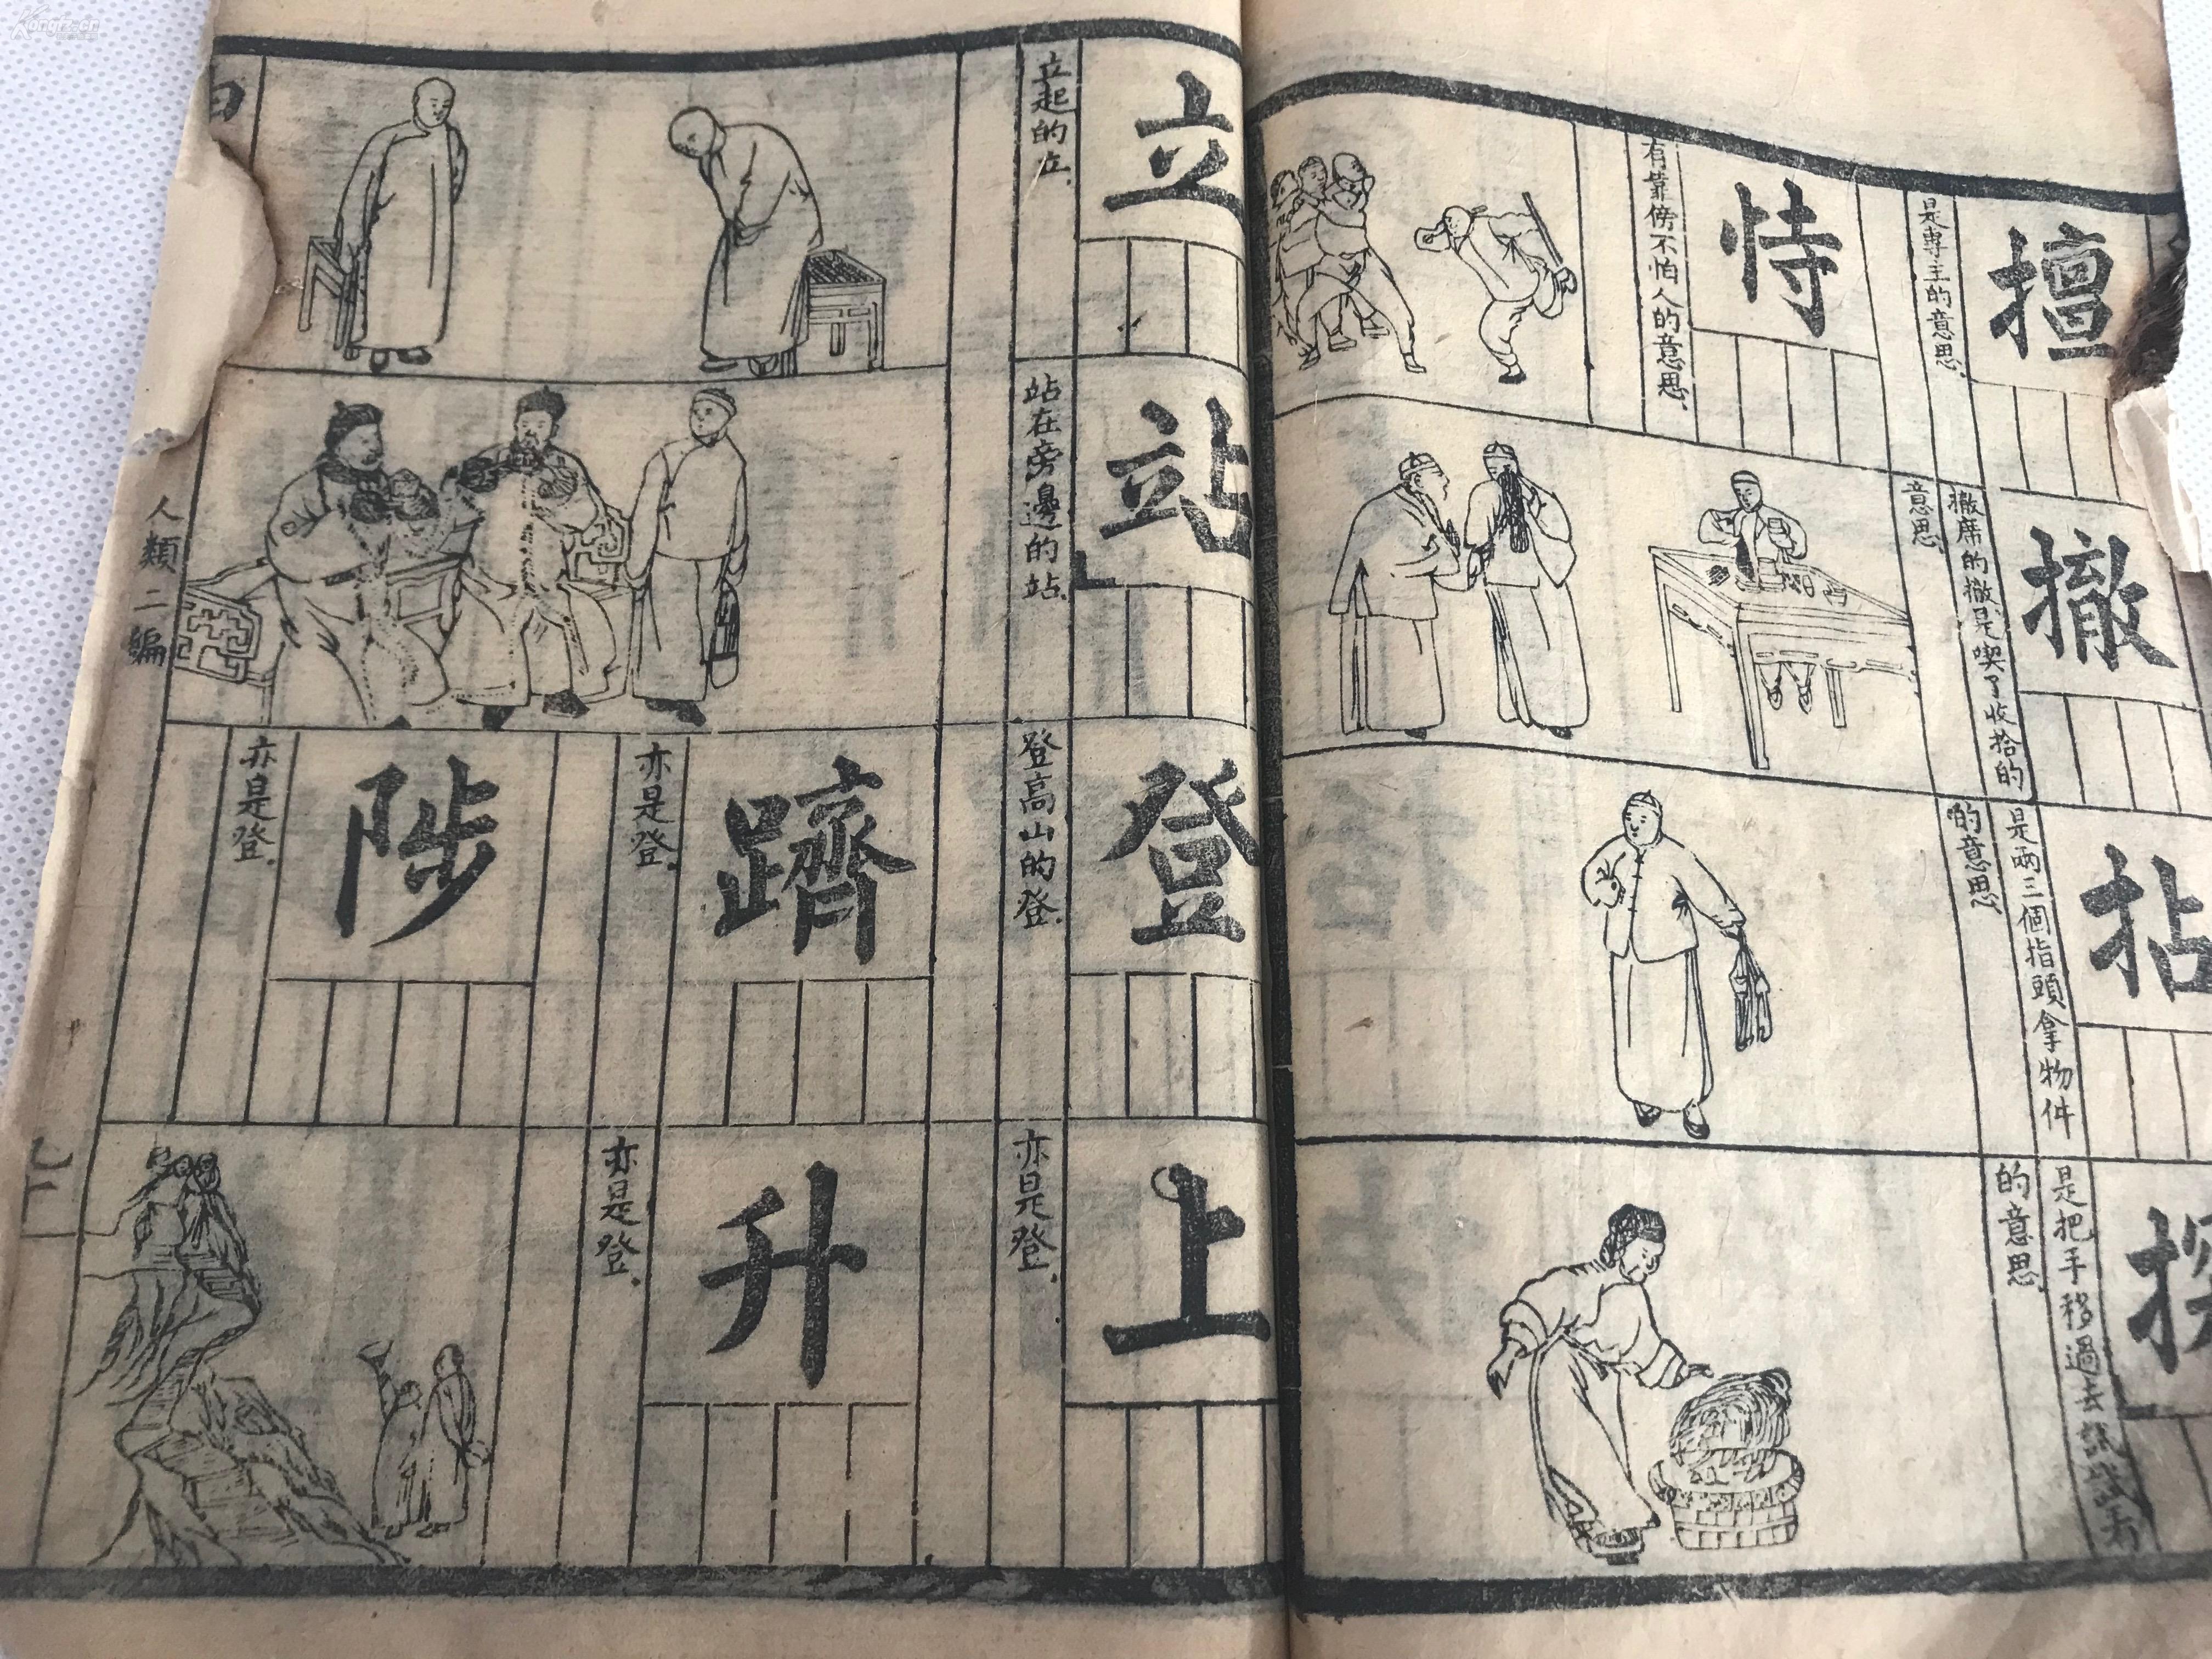 擅
是專主的意思.
恃
有靠傍不怕人的意思.
撤
撤席的撤是喫了收拾的
意思.
拈
是兩三個指頭拿物件
的意思.
探
是把手移過去試試看
的意思.
立
立起的立.
站
站在旁邊的站.
登
登高山的登.
躋
亦是登.
陟
亦是登.
上
亦是登.
升
亦是登.
人類二編
Kongfz.cn